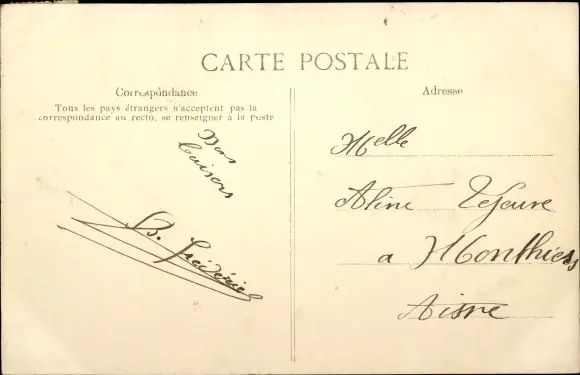 CARTE POSTALE
Correspondance
Tous les pays étrangers n'acceptent pas la
correspondance au recto, se renseigner à la poste
Bons
baisers
B. Frédéric
Adresse
Melle
Aline Lefeuvre
a Monthiers
Aisne